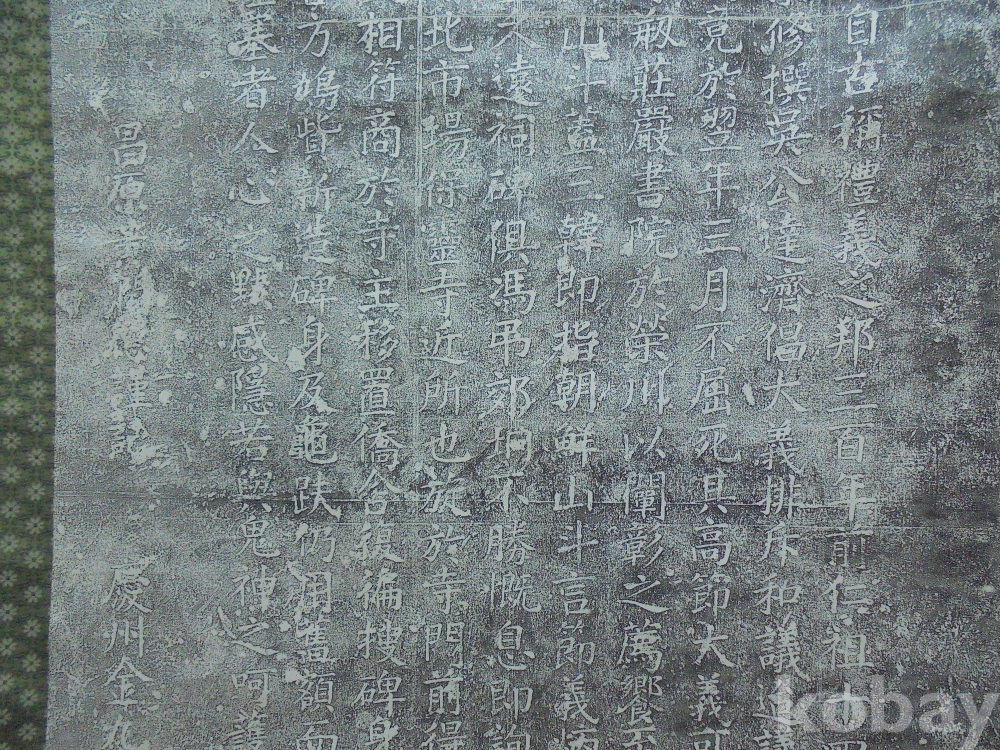 自古稱禮義之邦三百年前仁祖
修撰吳公達濟倡大義排斥和議
竟於翌年三月不屈死其高節大義可
莊嚴書院於榮川以闡彰之薦饗
山斗蓋三韓即指朝鮮山斗言節義
遠祠碑俱馮弔郊坰不勝慨息即詢
此市場保靈寺近所也旋於寺門前得
相符商於寺主移置僑舍後徧搜碑身
方鳩貲新造碑身及龜趺仍用舊額而
墓者人心之默感隱若與鬼神之呵護
昌原 謹
慶州金
kobay